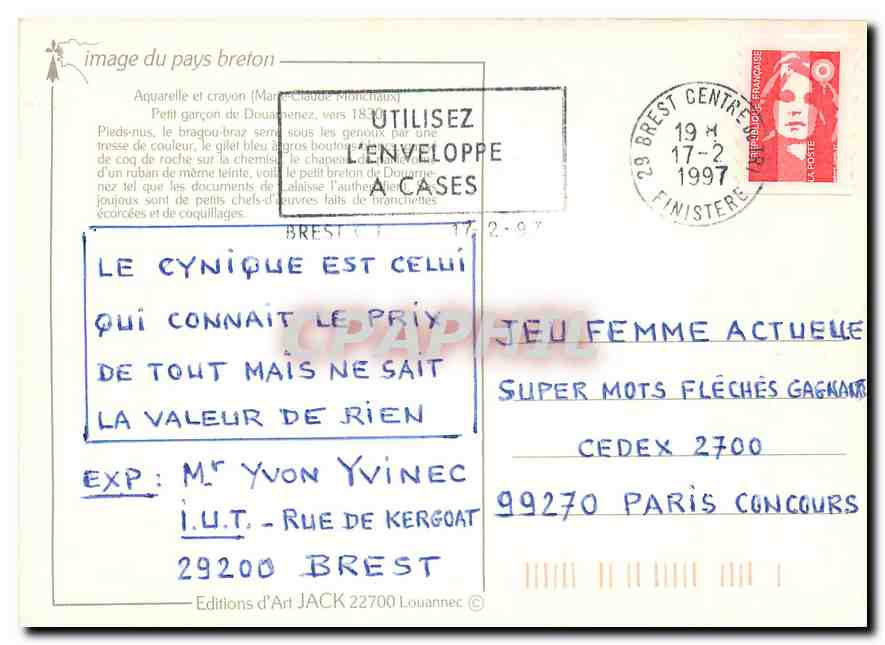 image du pays breton
Aquarelle et crayon (Marie-Claude Monchaux)
Petit garçon de Douarnenez, vers 1830
Pieds-nus, le bragou-braz serré sous les genoux par une
tresse de couleur, le gilet bleu à gros boutons
de coq de roche sur la chemise, le chapeau
d'un ruban de même teinte, voilà le petit breton de Douarne-
nez tel que les documents de Lalaisse l'authentifient
joujoux sont de petits chefs-d'œuvres faits de branchettes
écorcées et de coquillages.
UTILISEZ
L'ENVELOPPE
A CASES
BREST C T 17-2-97
29 BREST CENTRE
19 H
17-2
1997
FINISTERE
REPUBLIQUE FRANÇAISE
LA POSTE
LE CYNIQUE EST CELUI
QUI CONNAIT LE PRIX
DE TOUT MAIS NE SAIT
LA VALEUR DE RIEN
EXP : Mr YVON YVINEC
I.U.T. - RUE DE KERGOAT
29200 BREST
CPAPHIL
JEU FEMME ACTUELLE
SUPER MOTS FLÉCHÉS GAGNANTS
CEDEX 2700
99270 PARIS CONCOURS
Editions d'Art JACK 22700 Louannec ©